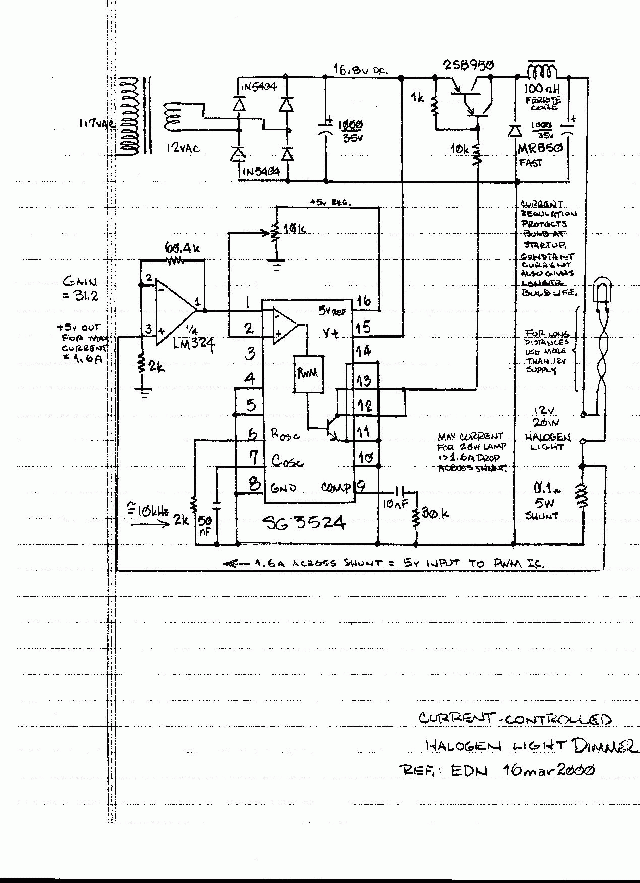 2SB950
1N5404
16.8V DC.
117VAC
12VAC
1N5404
1000
35V
1k
10k
100uH
FERRITE
CORE
1000
35V
MR850
FAST
+5V REG.
10k
CURRENT
REGULATION
PROTECTS
BULB AT
STARTUP.
CONSTANT
CURRENT
ALSO GIVES
LONGER
BULB LIFE.
60.4k
GAIN
= 31.2
+5V OUT
FOR MAX
CURRENT
= 1.6A
2
3
1
1/4
LM324
2k
1
2
3
4
5
6
7
8
5V REF
V+
PWM
ROSC
COSC
GND
COMP
16
15
14
13
12
11
10
9
SG3524
FOR LONG
DISTANCES
USE MORE
THAN 12V
SUPPLY
12V
20W
HALOGEN
LIGHT
MAX CURRENT
FOR 20W LAMP
IS 1.6A DROP
ACROSS SHUNT.
0.1Ω
5W
SHUNT
≅10kHz
2k
50
nF
10nF
30k
← 1.6A ACROSS SHUNT = 5V INPUT TO PWM IC.
CURRENT-CONTROLLED
HALOGEN LIGHT DIMMER
REF.: EDN 16mar2000